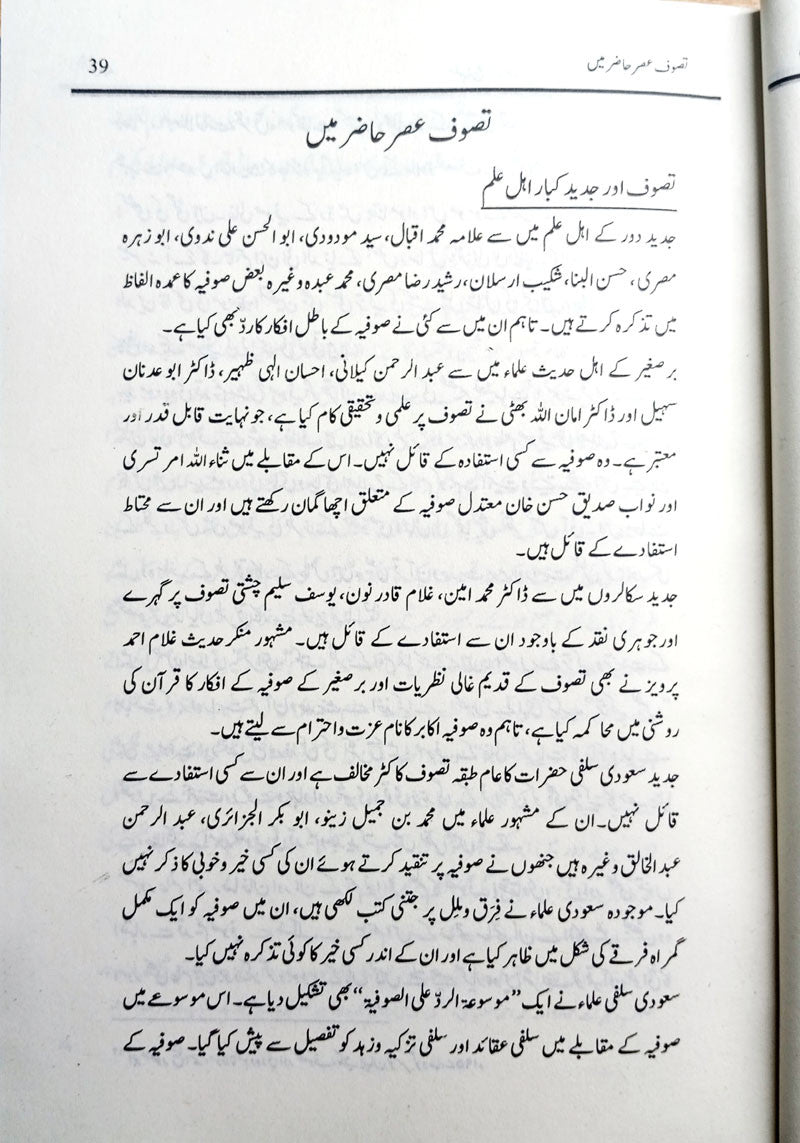 تصوف عصر حاضر میں
39
تصوف عصر حاضر میں
تصوف اور جدید کبار اہل علم
جدید دور کے اہل علم میں سے علامہ محمد اقبال، سید مودودی، ابو الحسن علی ندوی، ابو زہرہ
مصری، حسن البنا، شکیب ارسلان، رشید رضا مصری، محمد عبدہ وغیرہ بعض صوفیہ کا عمدہ الفاظ
میں تذکرہ کرتے ہیں۔ تاہم ان میں سے کئی نے صوفیہ کے باطل افکار کا ردّ بھی کیا ہے۔
برصغیر کے اہل حدیث علماء میں سے عبد الرحمن کیلانی، احسان الہی ظہیر، ڈاکٹر ابو عدنان
سہیل اور ڈاکٹر امان اللہ بھٹی نے تصوف پر علمی و تحقیقی کام کیا ہے، جو نہایت قابل قدر اور
معتبر ہے۔ وہ صوفیہ سے کسی استفادہ کے قائل نہیں۔ اس کے مقابلے میں ثناء اللہ امرتسری
اور نواب صدیق حسن خان معتدل صوفیہ کے متعلق اچھا گمان رکھتے ہیں اور ان سے محتاط
استفادے کے قائل ہیں۔
جدید سکالروں میں سے ڈاکٹر محمد امین، غلام قادر نون، یوسف سلیم چشتی تصوف پر گہرے
اور جوہری نقد کے باوجود ان سے استفادے کے قائل ہیں۔ مشہور منکر حدیث غلام احمد
پرویز نے بھی تصوف کے قدیم غالی نظریات اور برصغیر کے صوفیہ کے افکار کا قرآن کی
روشنی میں محاکمہ کیا ہے، تاہم وہ صوفیہ اکابر کا نام عزت و احترام سے لیتے ہیں۔
جدید سعودی سلفی حضرات کا عام طبقہ تصوف کا کٹر مخالف ہے اور ان سے کسی استفادے سے
قائل نہیں۔ ان کے مشہور علماء میں محمد بن جمیل زینو، ابو بکر الجزائری، عبد الرحمن
عبد الخالق وغیرہ ہیں جنھوں نے صوفیہ پر تنقید کرتے ہوئے ان کی کسی خیر و خوبی کا ذکر نہیں
کیا۔ موجودہ سعودی علماء نے فِرَق و مِلل پر جتنی کتب لکھی ہیں، ان میں صوفیہ کو ایک مکمل
گمراہ فرقے کی شکل میں ظاہر کیا ہے اور ان کے اندر کسی خیر کا کوئی تذکرہ نہیں کیا۔
سعودی سلفی علماء نے ایک ”موسوعۃ الردّ علی الصوفیۃ“ بھی تشکیل دیا ہے۔ اس موسوعے میں
صوفیہ کے مقابلے میں سلفی عقائد اور سلفی تزکیہ و زہد کو تفصیل سے پیش کیا گیا۔ صوفیہ کے